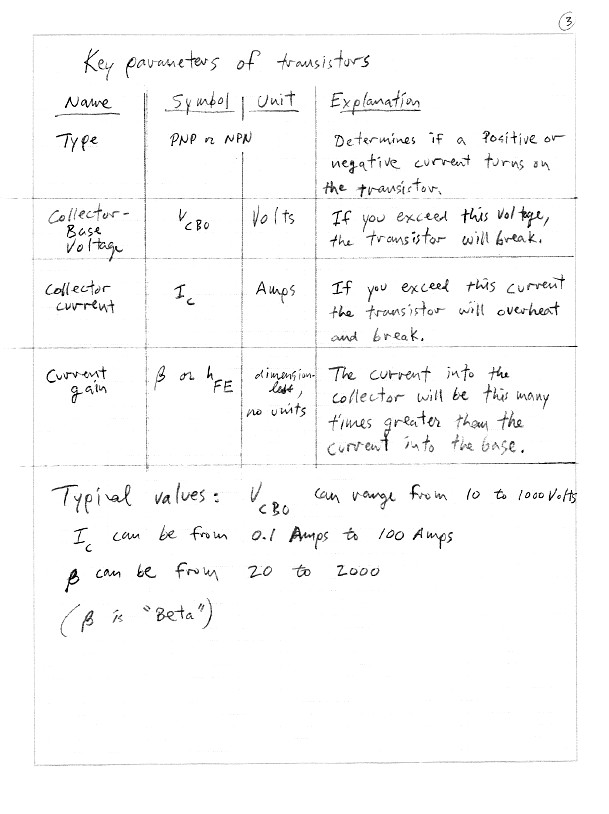 3
Key parameters of transistors
Name Symbol Unit Explanation
Type PNP or NPN Determines if a Positive or
negative current turns on
the transistor.
Collector- VCBO Volts If you exceed this voltage,
Base the transistor will break.
Voltage
Collector IC Amps If you exceed this current
current the transistor will overheat
and break.
Current β or hFE dimension- The current into the
gain less, collector will be this many
no units times greater than the
current into the base.
Typical values: VCBO can range from 10 to 1000 Volts
IC can be from 0.1 Amps to 100 Amps
β can be from 20 to 2000
(β is "Beta")